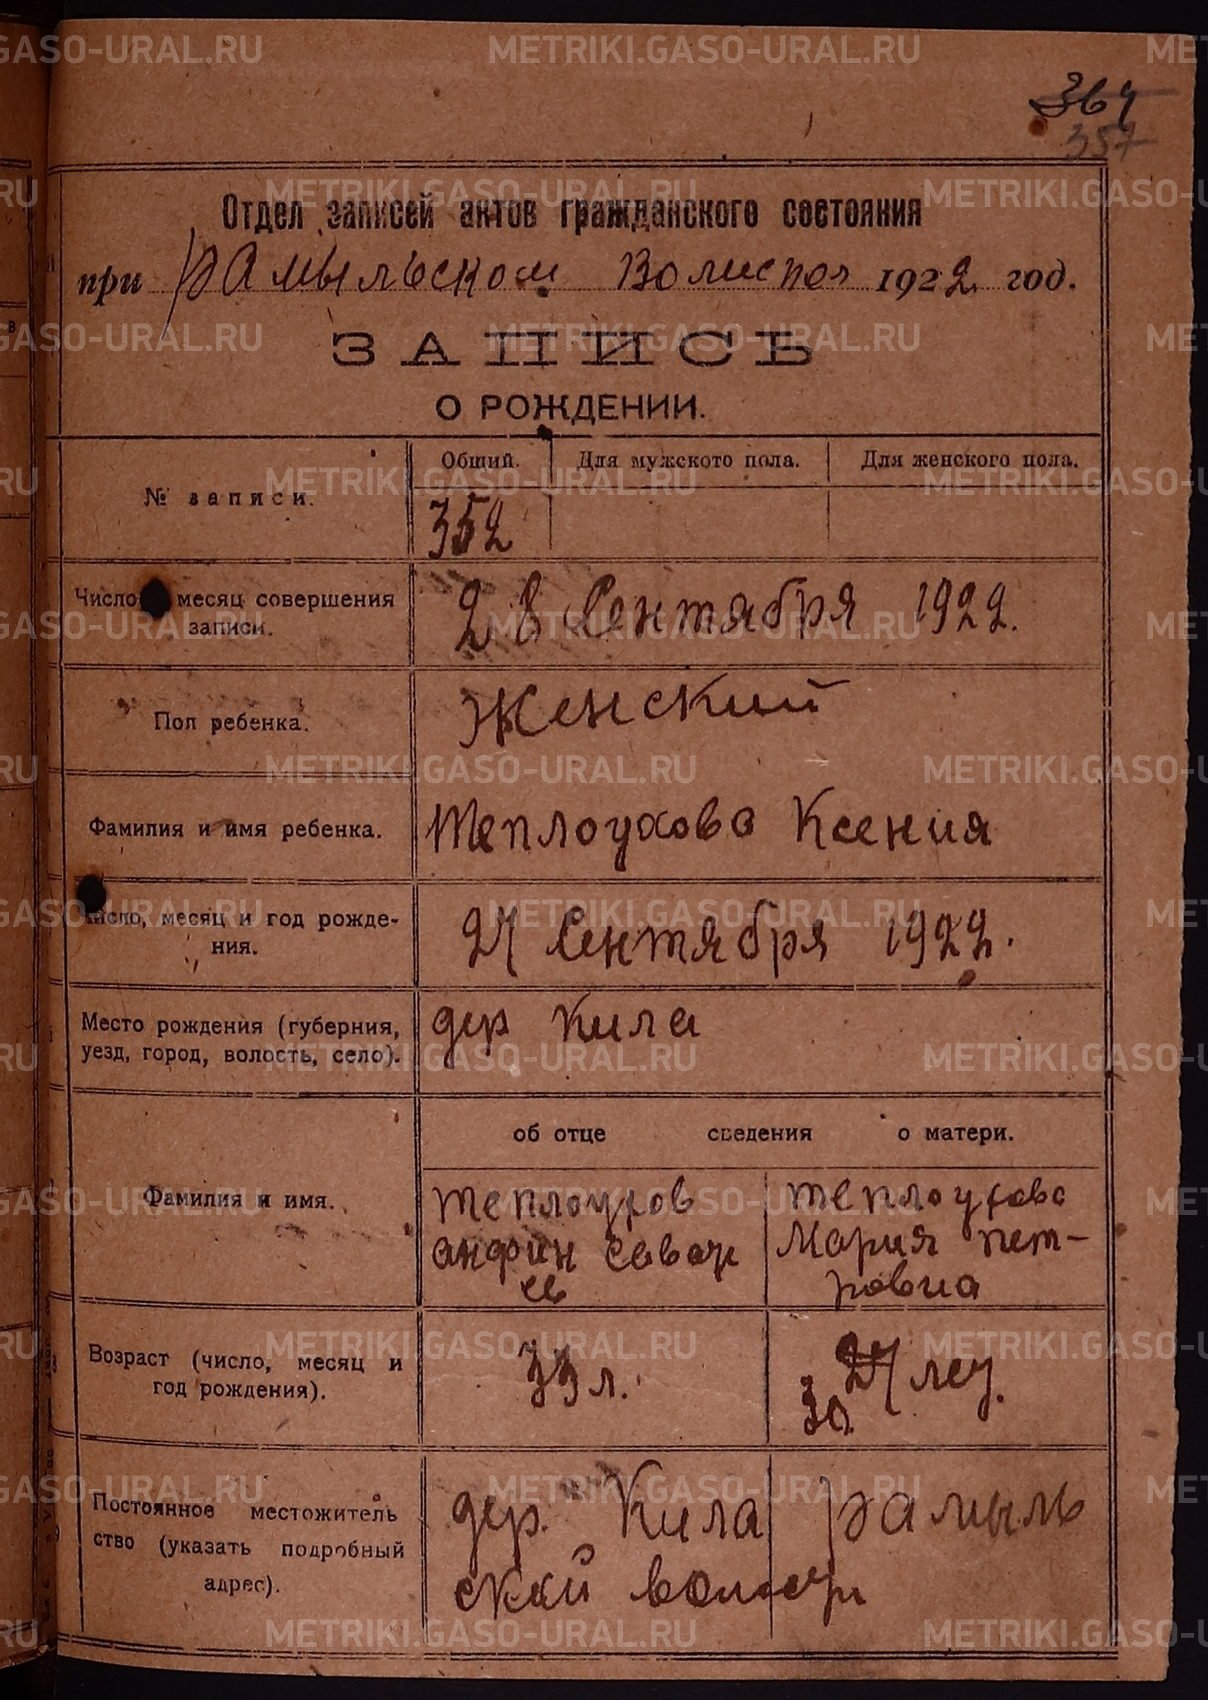 364
357
Отдел записей актов гражданского состояния
при Рамыльском Волиспол 1922 год.
ЗАПИСЬ
О РОЖДЕНИИ.
№ записи.
Общий. Для мужского пола. Для женского пола.
352
Число месяц совершения
записи.
28 Сентября 1922.
Пол ребенка.
Женский
Фамилия и имя ребенка.
Теплоухова Ксения
Число, месяц и год рожде-
ния.
27 Сентября 1922.
Место рождения (губерния,
уезд, город, волость, село).
дер Кила
об отце сведения о матери.
Фамилия и имя.
Теплоухов
Теплоухова
Мария Пет-
ровна
Возраст (число, месяц и
год рождения).
33 л.
27 лет.
30
Постоянное местожитель
ство (указать подробный
адрес).
дер. Кила Рамыль
ской волости
METRIKI.GASO-URAL.RU